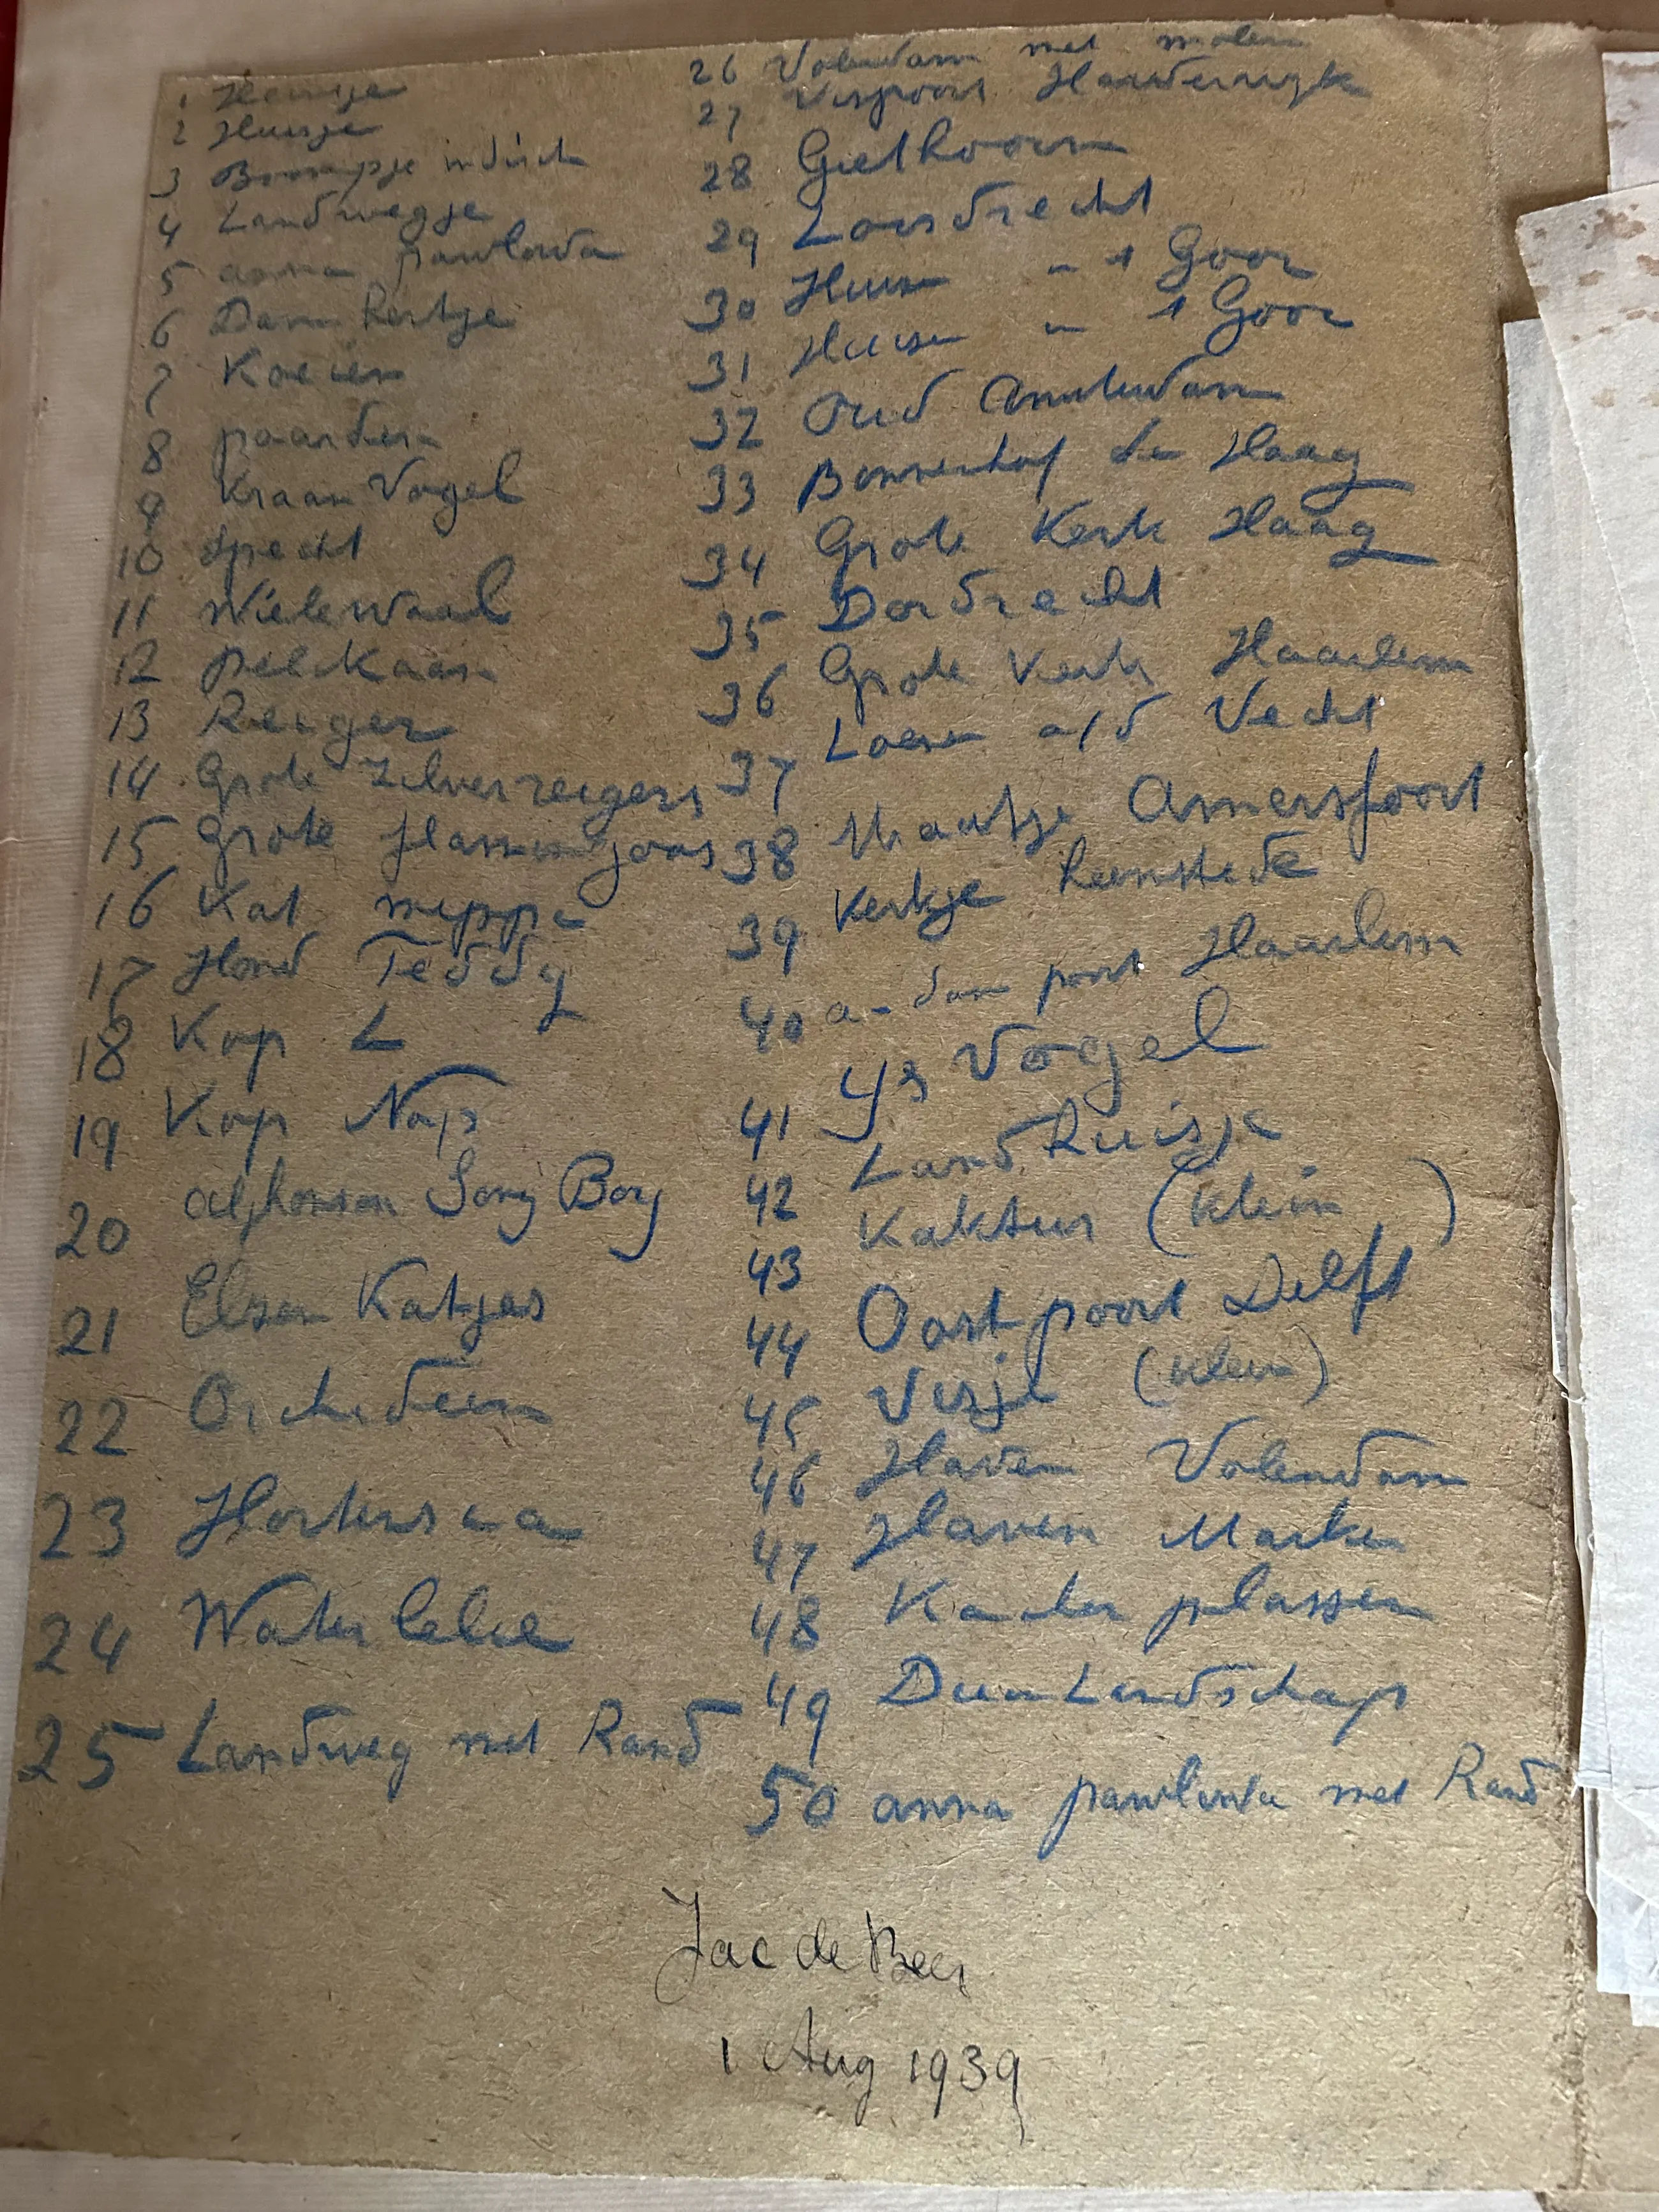 1 Heintje
2 Huisje
3 Boompje indisch
4 Landwegje
5 anna pawlowa
6 Damhertje
7 Koeien
8 paarden
9 Kraan Vogel
10 Specht
11 Wielewaal
12 pelikaan
13 Reiger
14 Grote Zilverreigers
15 Grote
16 Kat mippie
17 Hond Teddy
18 Kop L
19 Kop Nap
20 Alphonson Sony Boy
21 Elzen Katjes
22 Orchideen
23 Hortensia
24 Waterlelie
25 Landweg met Rand
26 Volendam met molen
27 Vispoort Harderwijk
28 Giethoorn
29 Loosdrecht
30 Huis 't Goor
31 Huis 't Goor
32 Oud Amsterdam
33 Binnenhof de Haag
34 Grote Kerk Haag
35 Dordrecht
36 Grote Kerk Haarlem
37 Loenen a/d Vecht
38 Amersfoort
39 Kerkje heemstede
40 a-dam poort Haarlem
41 Ys Vogel
42 Landhuisje
43 Kaktus (klein)
44 Oostpoort Delft
45 Visje (klein)
46 Haven Volendam
47 Haven Marken
48 plassen
49 Duin Landschap
50 anna pawlowa met Rand
Jac de Beer
1 Aug 1939